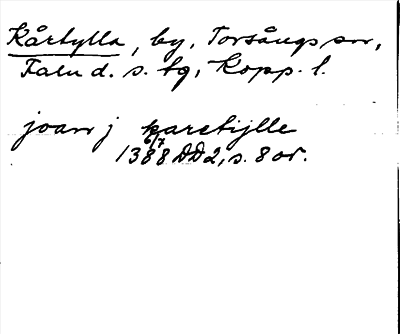 Kårtylla, by, Torsångs sn,
Falu d. s. tg, Kopp. l.
joan j karetylle
6/7
1388 DD2, s. 8 or.